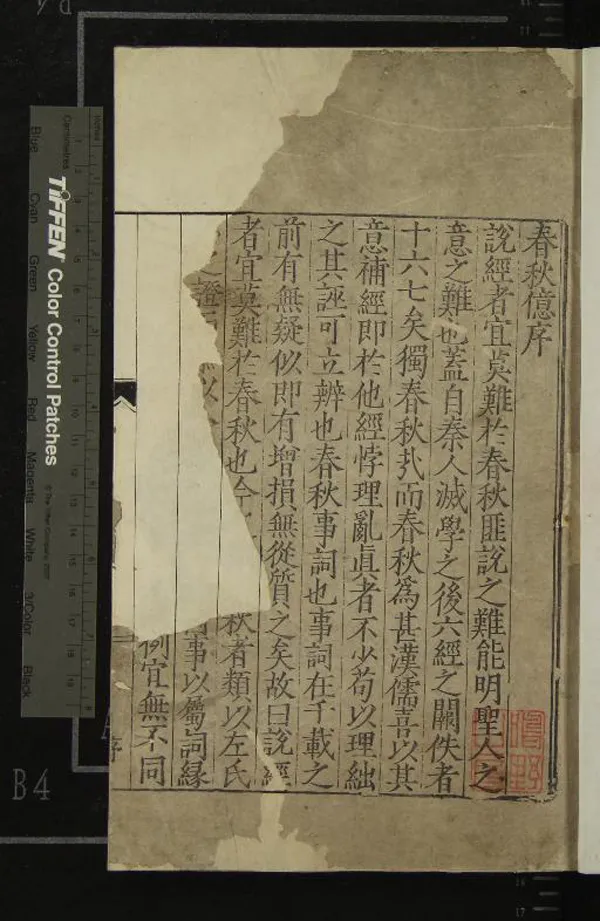 春秋億序
說經者宜莫難於春秋匪說之難能明聖人之
意之難也蓋自秦人滅學之後六經之闕佚者
十六七矣獨春秋
而春秋爲甚漢儒喜以其
意補經即於他經悖理亂眞者不少苟以理絀
之其誣可立辨也春秋事詞也事詞在千載之
前有無疑似即有增損無從質之矣故曰說經
者宜莫難於春秋也今
秋者類以左氏
之證
以
事以屬詞緣
例宜無不同
序
Inches
Centimetres
TIFFEN Color Control Patches
© The Tiffen Company, 2007
Blue
Cyan
Green
Yellow
Red
Magenta
White
3/Color
Black
B4